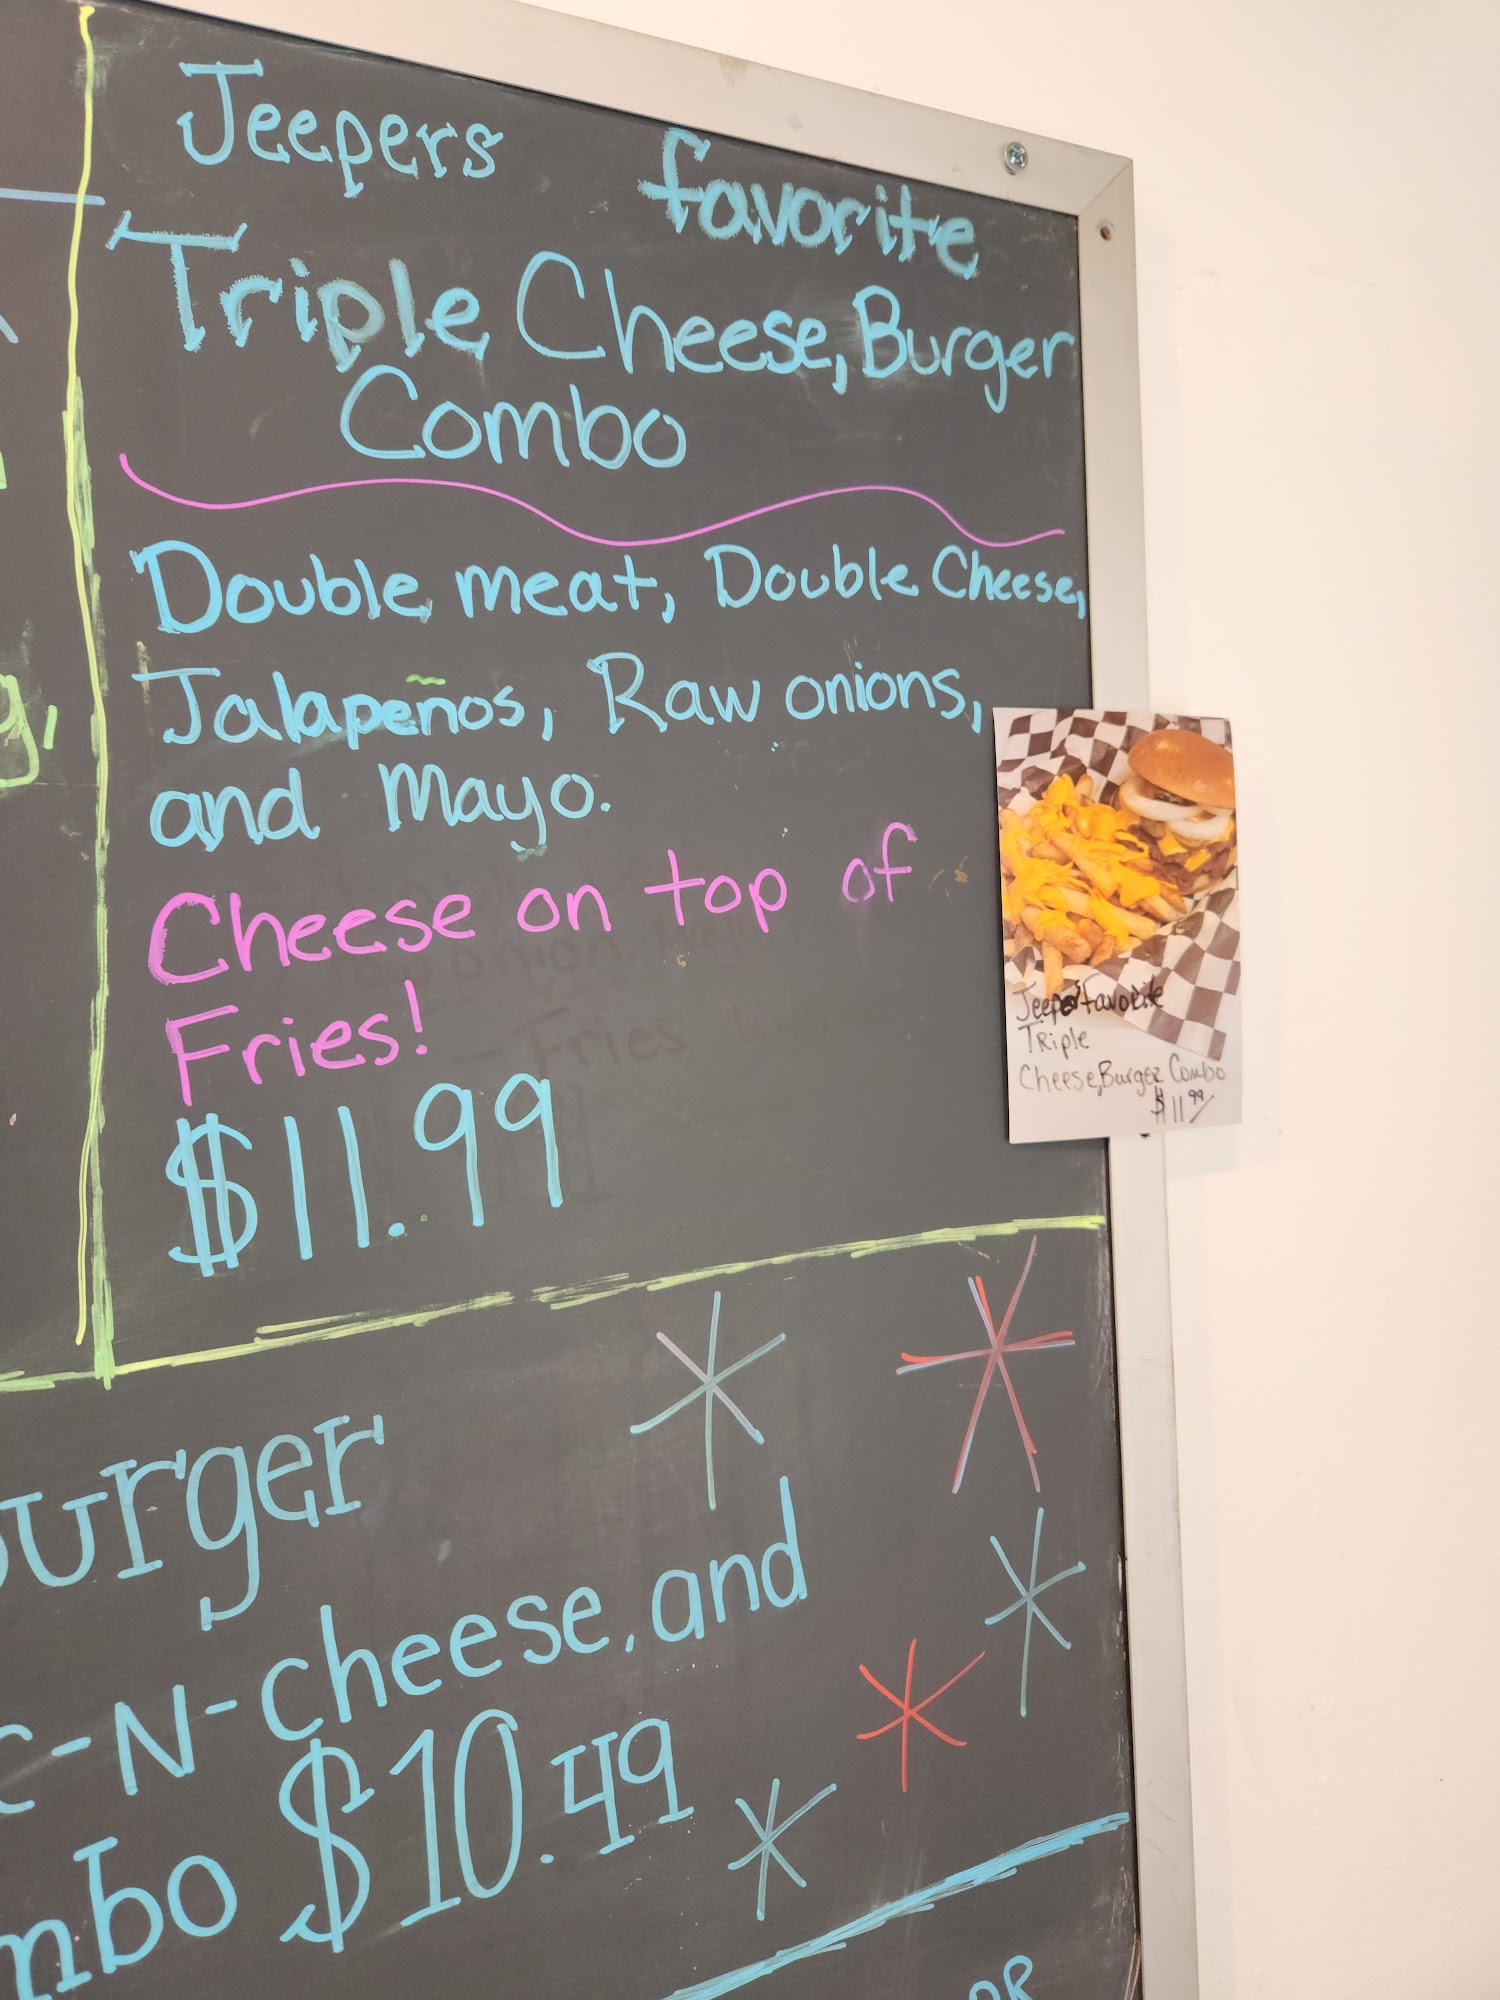 Jeepers favorite
Triple Cheese, Burger
Combo
Double meat, Double Cheese,
Jalapeños, Raw onions,
and Mayo.
Cheese on top of
Fries!
$11.99
Jeepers Favorite
Triple
Cheese, Burger Combo
$11.99
urger
c-N-cheese, and
mbo $10.49
OR